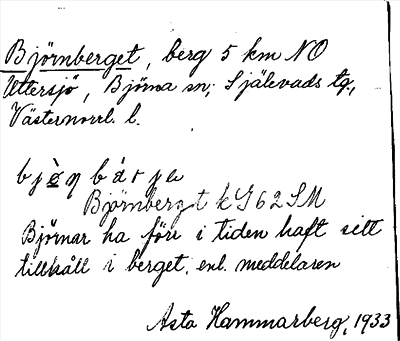 Björnberget, berg 5 km NO
Uttersjö, Björna sn, Själevads tg,
Västernorrl. l.
b j ø̀ ŋ b á r j e
Björnberget kS 62 SM
Björnar ha förr i tiden haft sitt
tillhåll i berget, enl. meddelaren
Asta Hammarberg, 1933